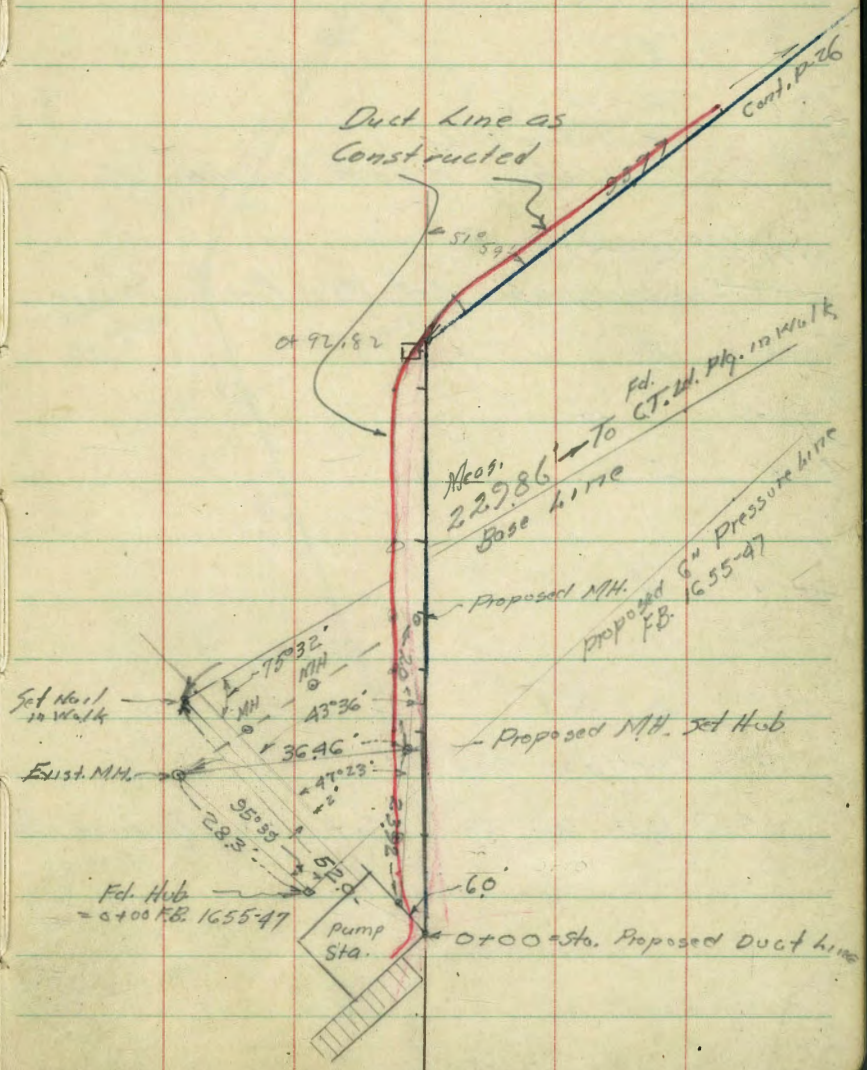 Cont. P-26
Duct Line as
Constructed
9377
51° 59'
0+92.82
Fd.
Meas.
229.86' → To C.T. Ld. Plg. in Walk
Base Line
Proposed 6" Pressure Line
F.B. 1655-47
Proposed MH.
75°32'
MH
MH
20
Set Nail
in Walk
43°36'
Proposed MH. Set Hub
36.46'
Exist. MH.
47°23'
2'
95°39
28.3'
23.92
52.0
Fd. Hub
= 0+00 F.B. 1655-47
6.0'
Pump
Sta.
0+00 = Sta. Proposed Duct Line